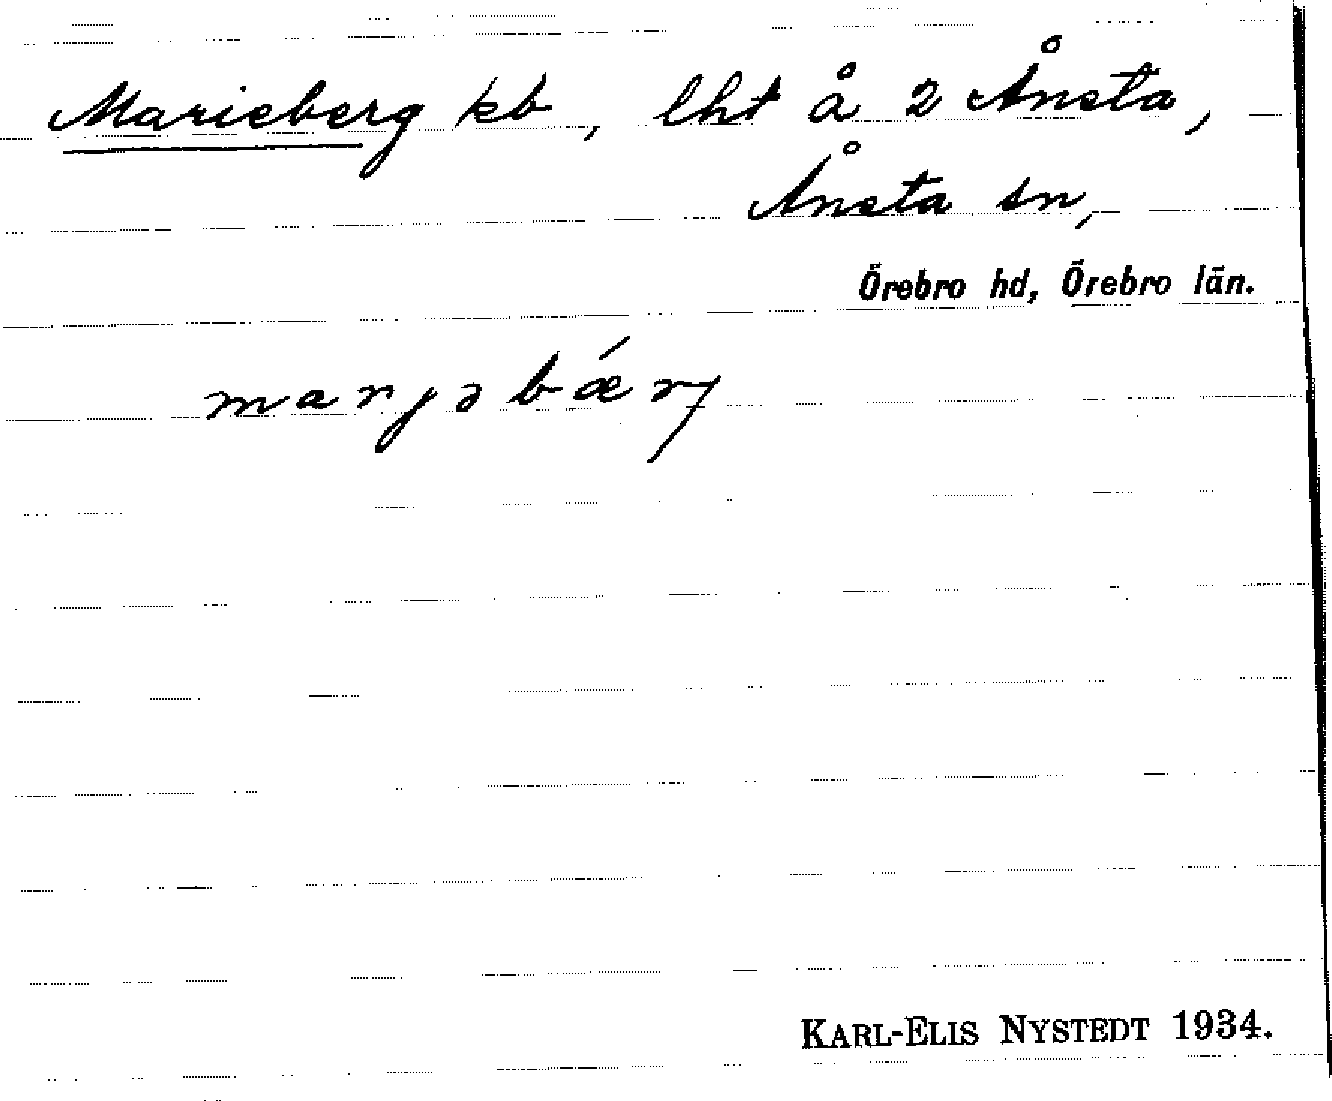 Marieberg kb, lht å 2 Ånsta,
Ånsta sn,
Örebro hd, Örebro län.
marjəbǽrj
KARL-ELIS NYSTEDT 1934.